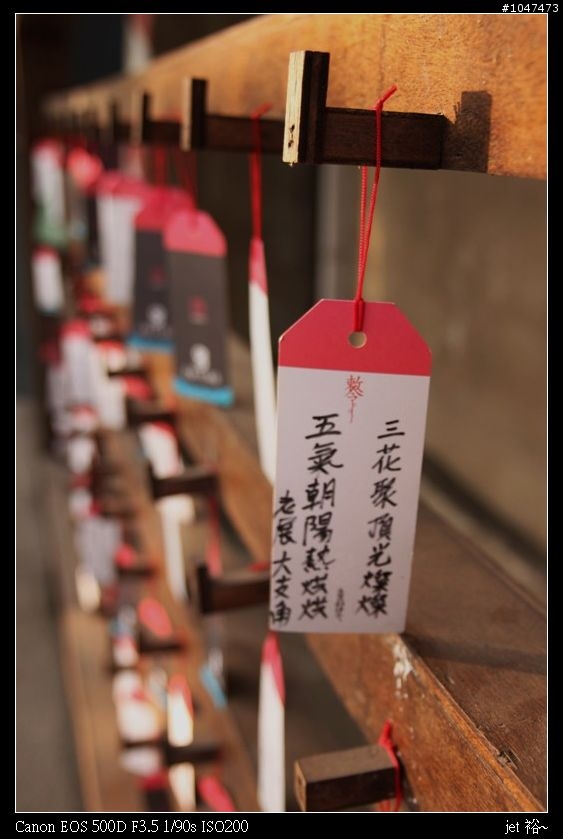 #1047473
三花聚頂光燦燦
五氣朝陽熱烘烘
老展大支角
Canon EOS 500D F3.5 1/90s ISO200
jet 裕~